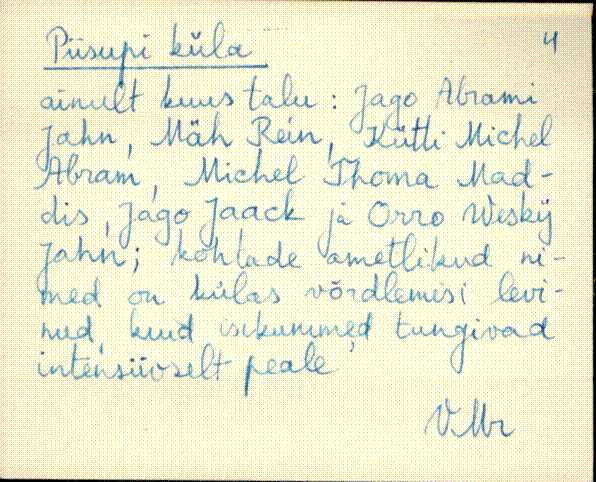 Piisupi küla 4
ainult kuus talu: Jago Abrami
Jahn, Mäh Rein, Kütti Michel
Abram, Michel Thoma Mad-
dis, Jago Jaack ja Orro Weskÿ
Jahn; kohtade ametlikud ni-
med on külas võrdlemisi levi-
nud, kuid isikunimed tungivad
intensiivselt peale
V. Mr